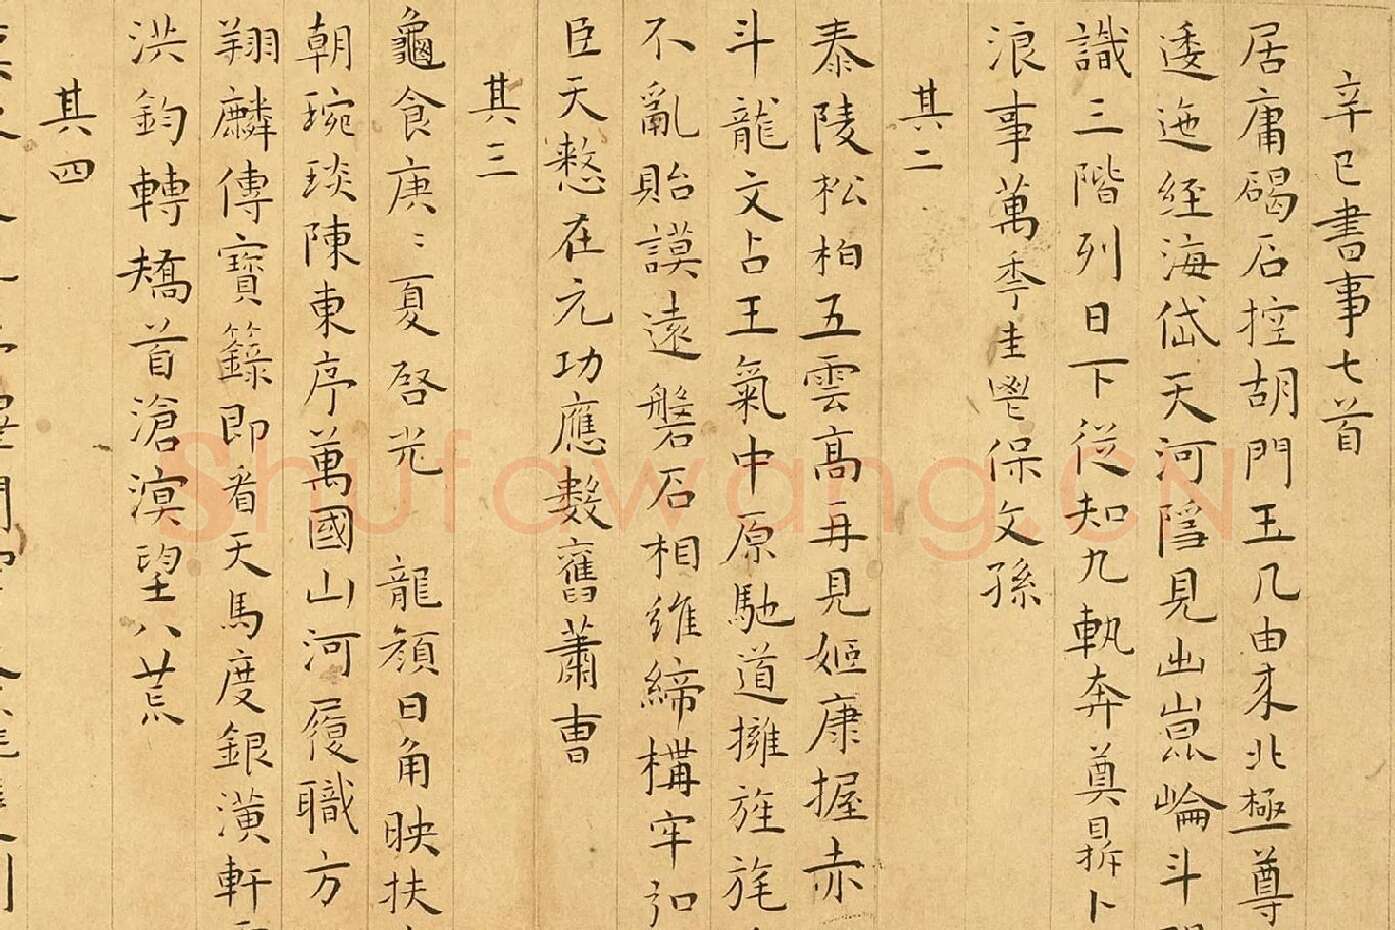 辛巳書事七首
居庸碣石控胡門玉几由来北極尊
逶迤經海岱天河隱見出崑崙斗
識三階列日下從知九軌奔奠卜
浪事萬季圭鬯保文孫
其二
泰陵松柏五雲高再見姬康握赤
斗龍文占王氣中原馳道擁旌旄
不亂貽謨遠磐石相維締構牢
臣天憖在元功應數舊蕭曹
其三
龜食庚〻夏啓光 龍顏日角映扶
朝琬琰陳東序萬國山河履職方
翔麟傳寶籙即看天馬度銀潢軒
洪鈞轉矯首滄溟望八荒
其四
Shufawang.CN